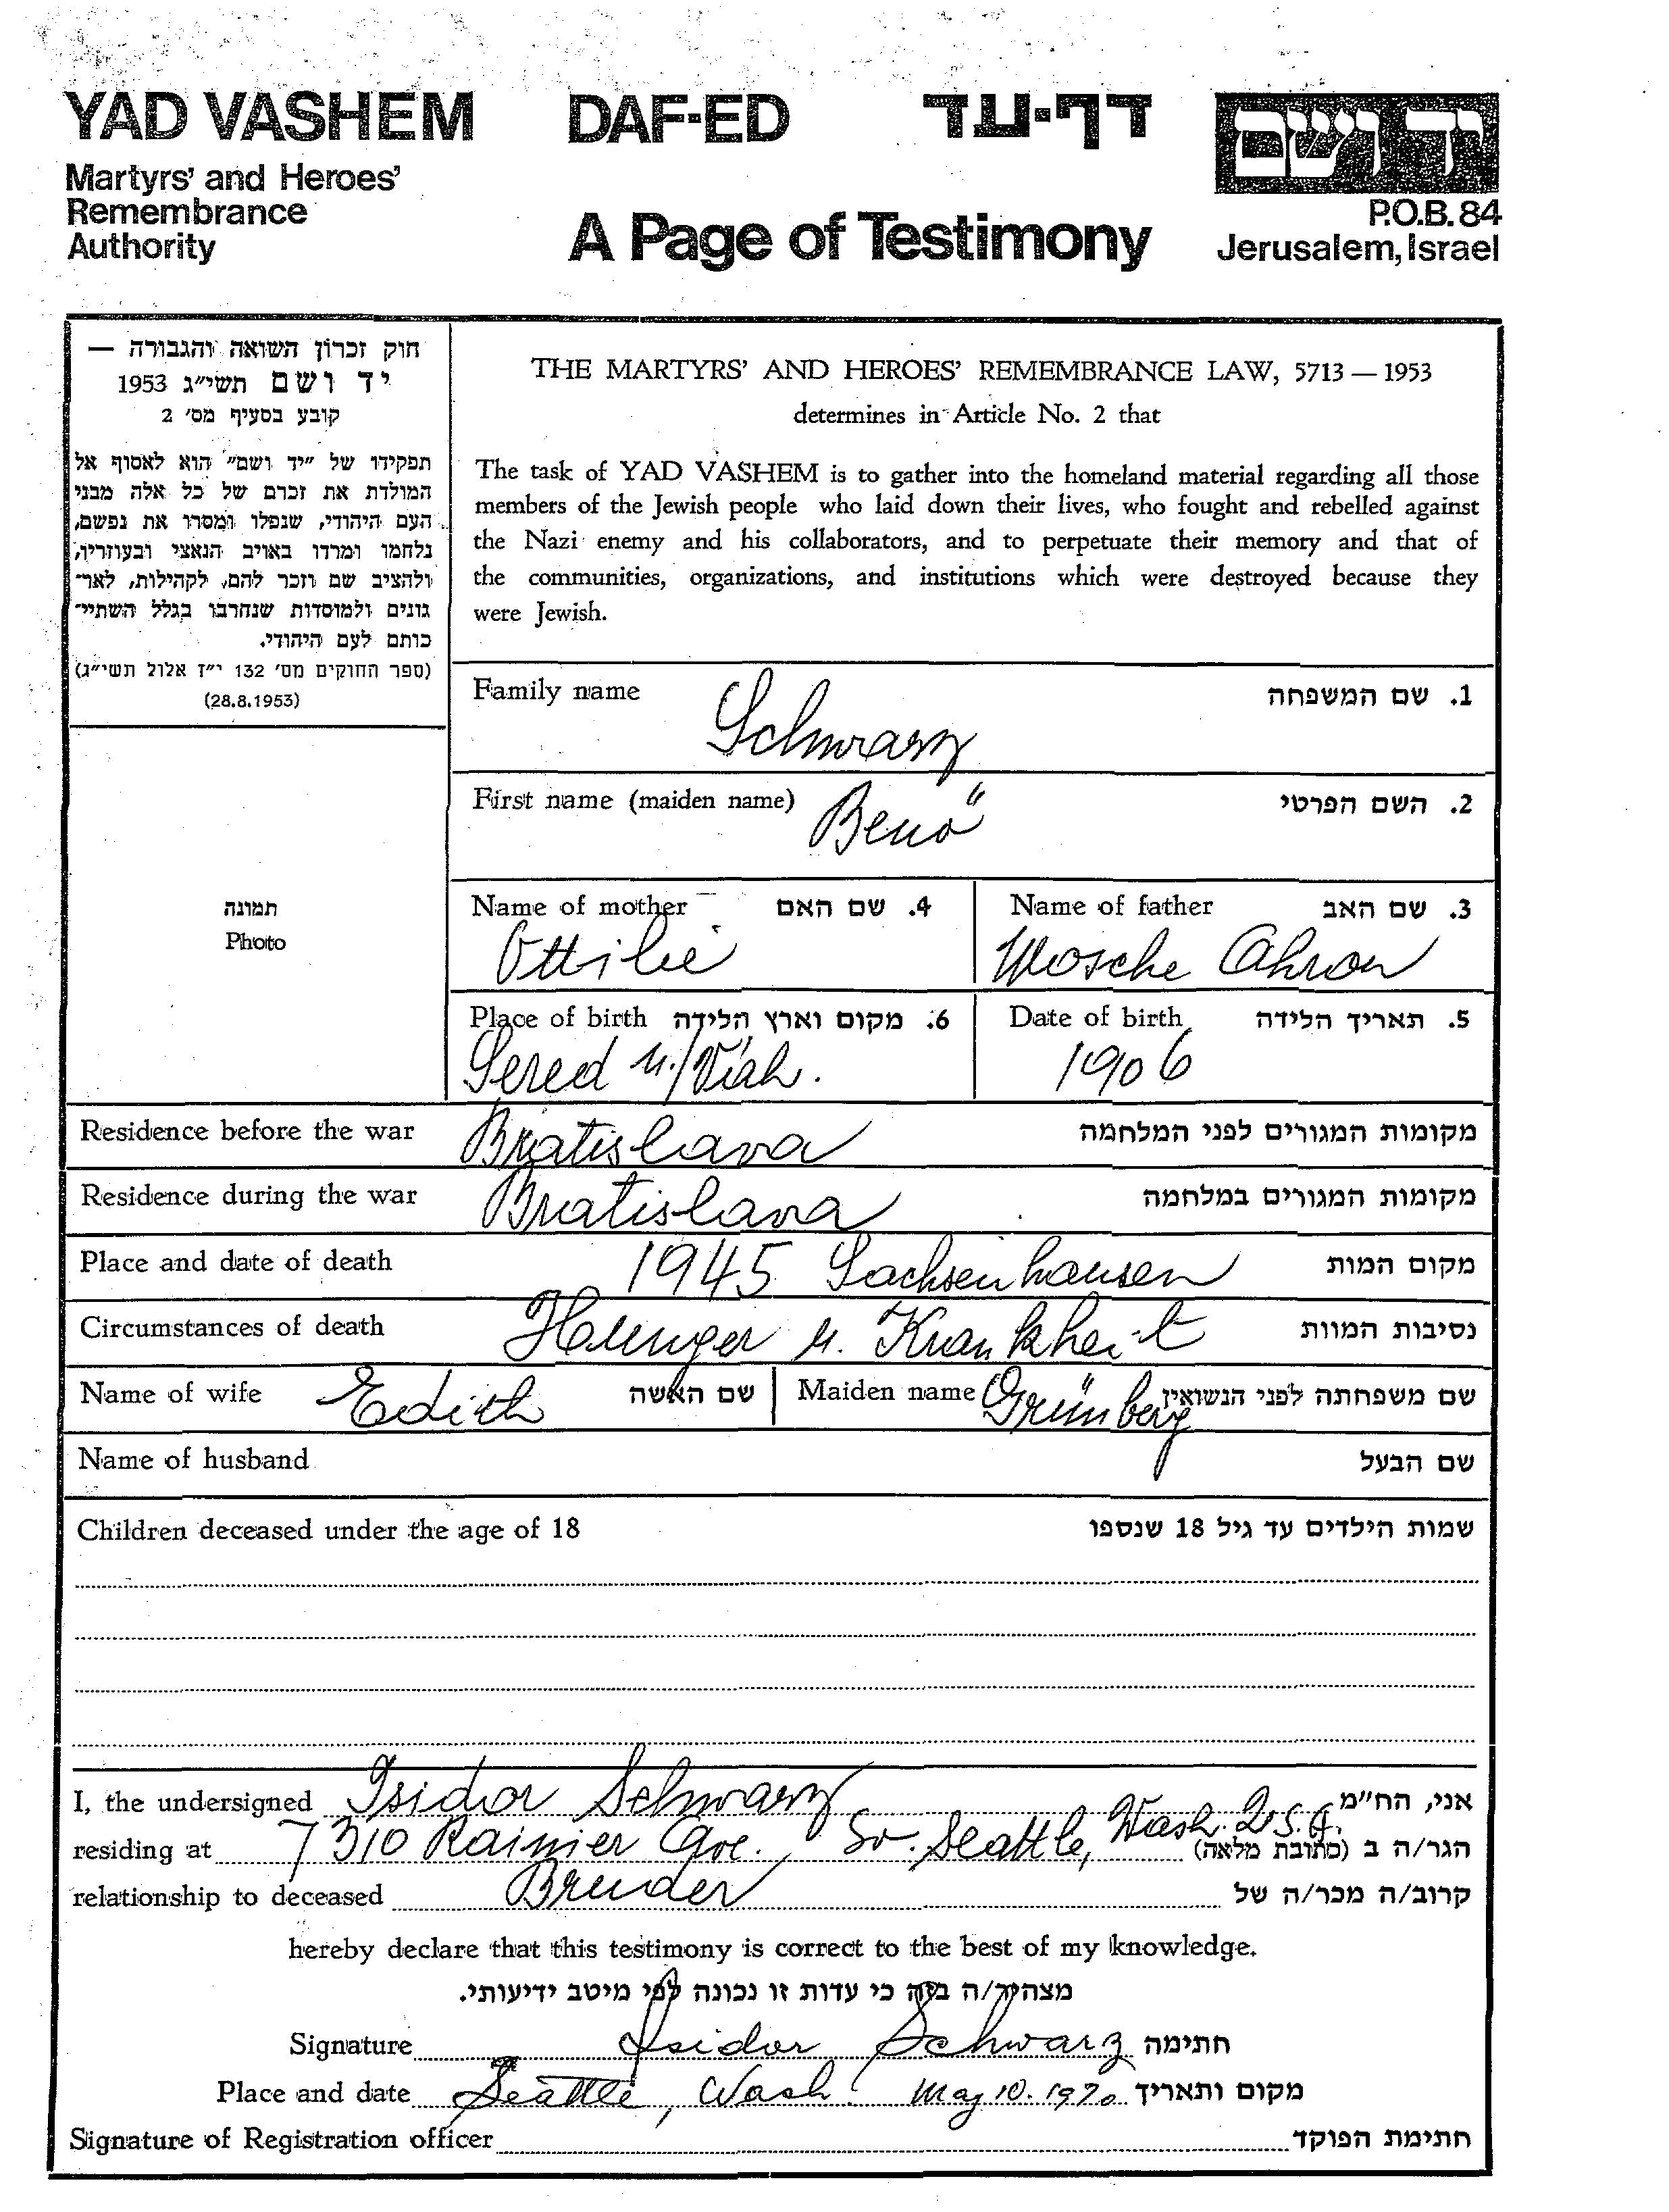 YAD VASHEM DAF-ED דף-עד יד ושם
Martyrs' and Heroes'
Remembrance
Authority
A Page of Testimony
P.O.B. 84
Jerusalem, Israel
חוק זכרון השואה והגבורה —
יד ושם תשי״ג 1953
קובע בסעיף מס׳ 2
תפקידו של ״יד ושם״ הוא לאסוף אל
המולדת את זכרם של כל אלה מבני
העם היהודי, שנפלו ומסרו את נפשם,
נלחמו ומרדו באויב הנאצי ובעוזריו,
ולהציב שם וזכר להם, לקהילות, לאר־
גונים ולמוסדות שנחרבו בגלל השתיי־
כותם לעם היהודי.
(ספר החוקים מס׳ 132 י״ז אלול תשי״ג)
(28.8.1953)
THE MARTYRS' AND HEROES' REMEMBRANCE LAW, 5713 — 1953
determines in Article No. 2 that
The task of YAD VASHEM is to gather into the homeland material regarding all those
members of the Jewish people who laid down their lives, who fought and rebelled against
the Nazi enemy and his collaborators, and to perpetuate their memory and that of
the communities, organizations, and institutions which were destroyed because they
were Jewish.
תמונה
Photo
Family name Schwarz 1. שם המשפחה
First name (maiden name) Benö 2. השם הפרטי
Name of mother 4. שם האם Name of father 3. שם האב
Ottilie Mosche Ahron
Place of birth 6. מקום וארץ הלידה Date of birth 5. תאריך הלידה
Sered n./Váh. 1906
Residence before the war Bratislava מקומות המגורים לפני המלחמה
Residence during the war Bratislava מקומות המגורים במלחמה
Place and date of death 1945 Sachsenhausen מקום המות
Circumstances of death Hunger u. Krankheit נסיבות המוות
Name of wife Edith שם האשה Maiden name Grünberg שם משפחתה לפני הנשואין
Name of husband שם הבעל
Children deceased under the age of 18 שמות הילדים עד גיל 18 שנספו
I, the undersigned Isidor Schwarz אני, הח״מ
residing at 7310 Rainier Ave. So. Seattle, Wash. U.S.A. הגר/ה ב (כתובת מלאה)
relationship to deceased Bruder קרוב/ה מכר/ה של
hereby declare that this testimony is correct to the best of my knowledge.
מצהיר/ה בזה כי עדות זו נכונה לפי מיטב ידיעותי.
Signature Isidor Schwarz חתימה
Place and date Seattle, Wash. May 10. 1970 מקום ותאריך
Signature of Registration officer חתימת הפוקד